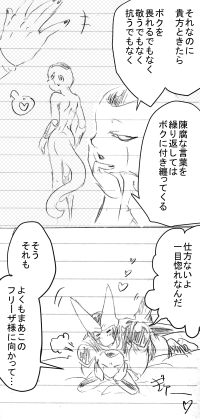 それなのに
貴方ときたら
ボクを
畏れるでもなく
敬うでもなく
抗うでもなく
陳腐な言葉を
繰り返しては
ボクに付き纏ってくる
仕方ないよ
一目惚れなんだ
そう
それも
よくもまあこの
フリーザ様に向かって…